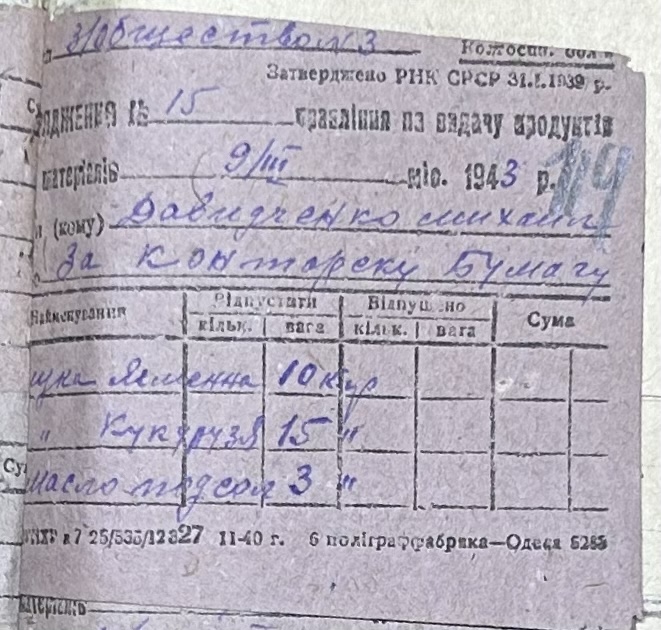 з/Обществом 3
Колхосп. обл
Затверджено РНК СРСР 31.I.1939 р.
ОРЯДЖЕННЯ № 15 правління на видачу продуктів
матеріалів 9/III міс. 1943 р. 119
(кому) Давидченко михаил
За конторску Бумагу
Найменування Відпустити Відпущено Сума
кільк. вага кільк. вага
мука Ячменна 10 кгр
" Кукурузя 15 "
масло подсол 3 "
25/535/12327 11-40 г. 6 поліграффабрика—Одеса 6285
матеріалів